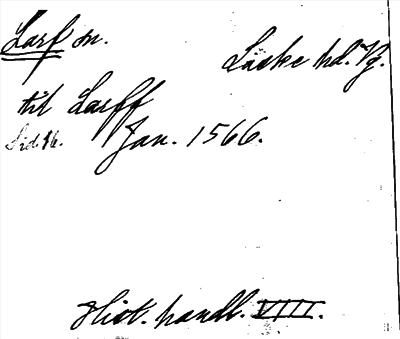 Larf sn.
Laske hd. Vg.
til Larff
Sid. 16. Jan. 1566.
Hist. handl. VIII.